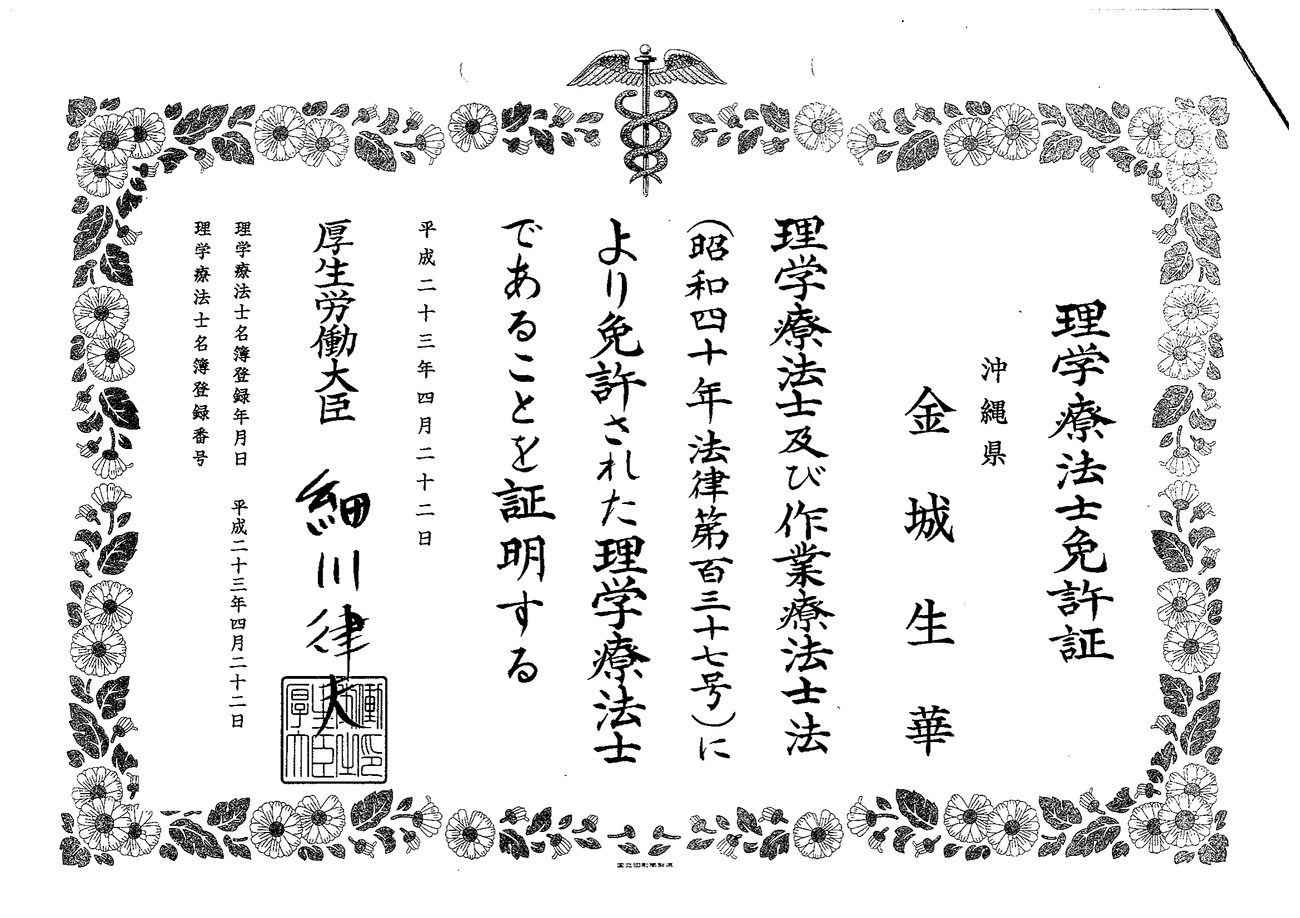 理学療法士免許証
沖縄県
金城生華
理学療法士及び作業療法士法
(昭和四十年法律第百三十七号)に
より免許された理学療法士
であることを証明する
平成二十三年四月二十二日
厚生労働大臣 細川律夫
理学療法士名簿登録年月日 平成二十三年四月二十二日
理学療法士名簿登録番号